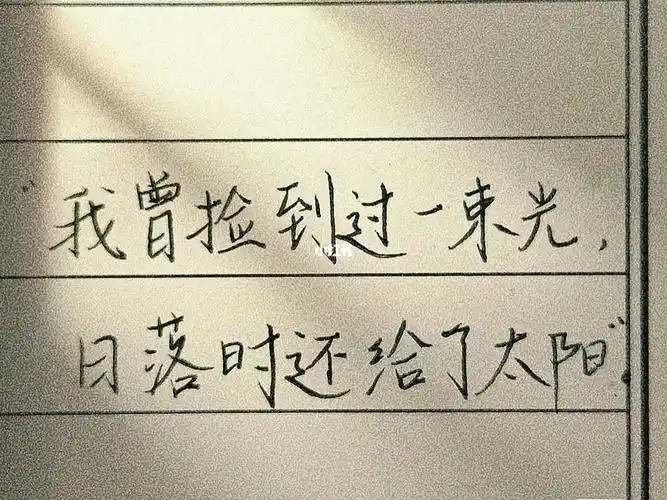 “我曾捡到过一束光，
日落时还给了太阳”。